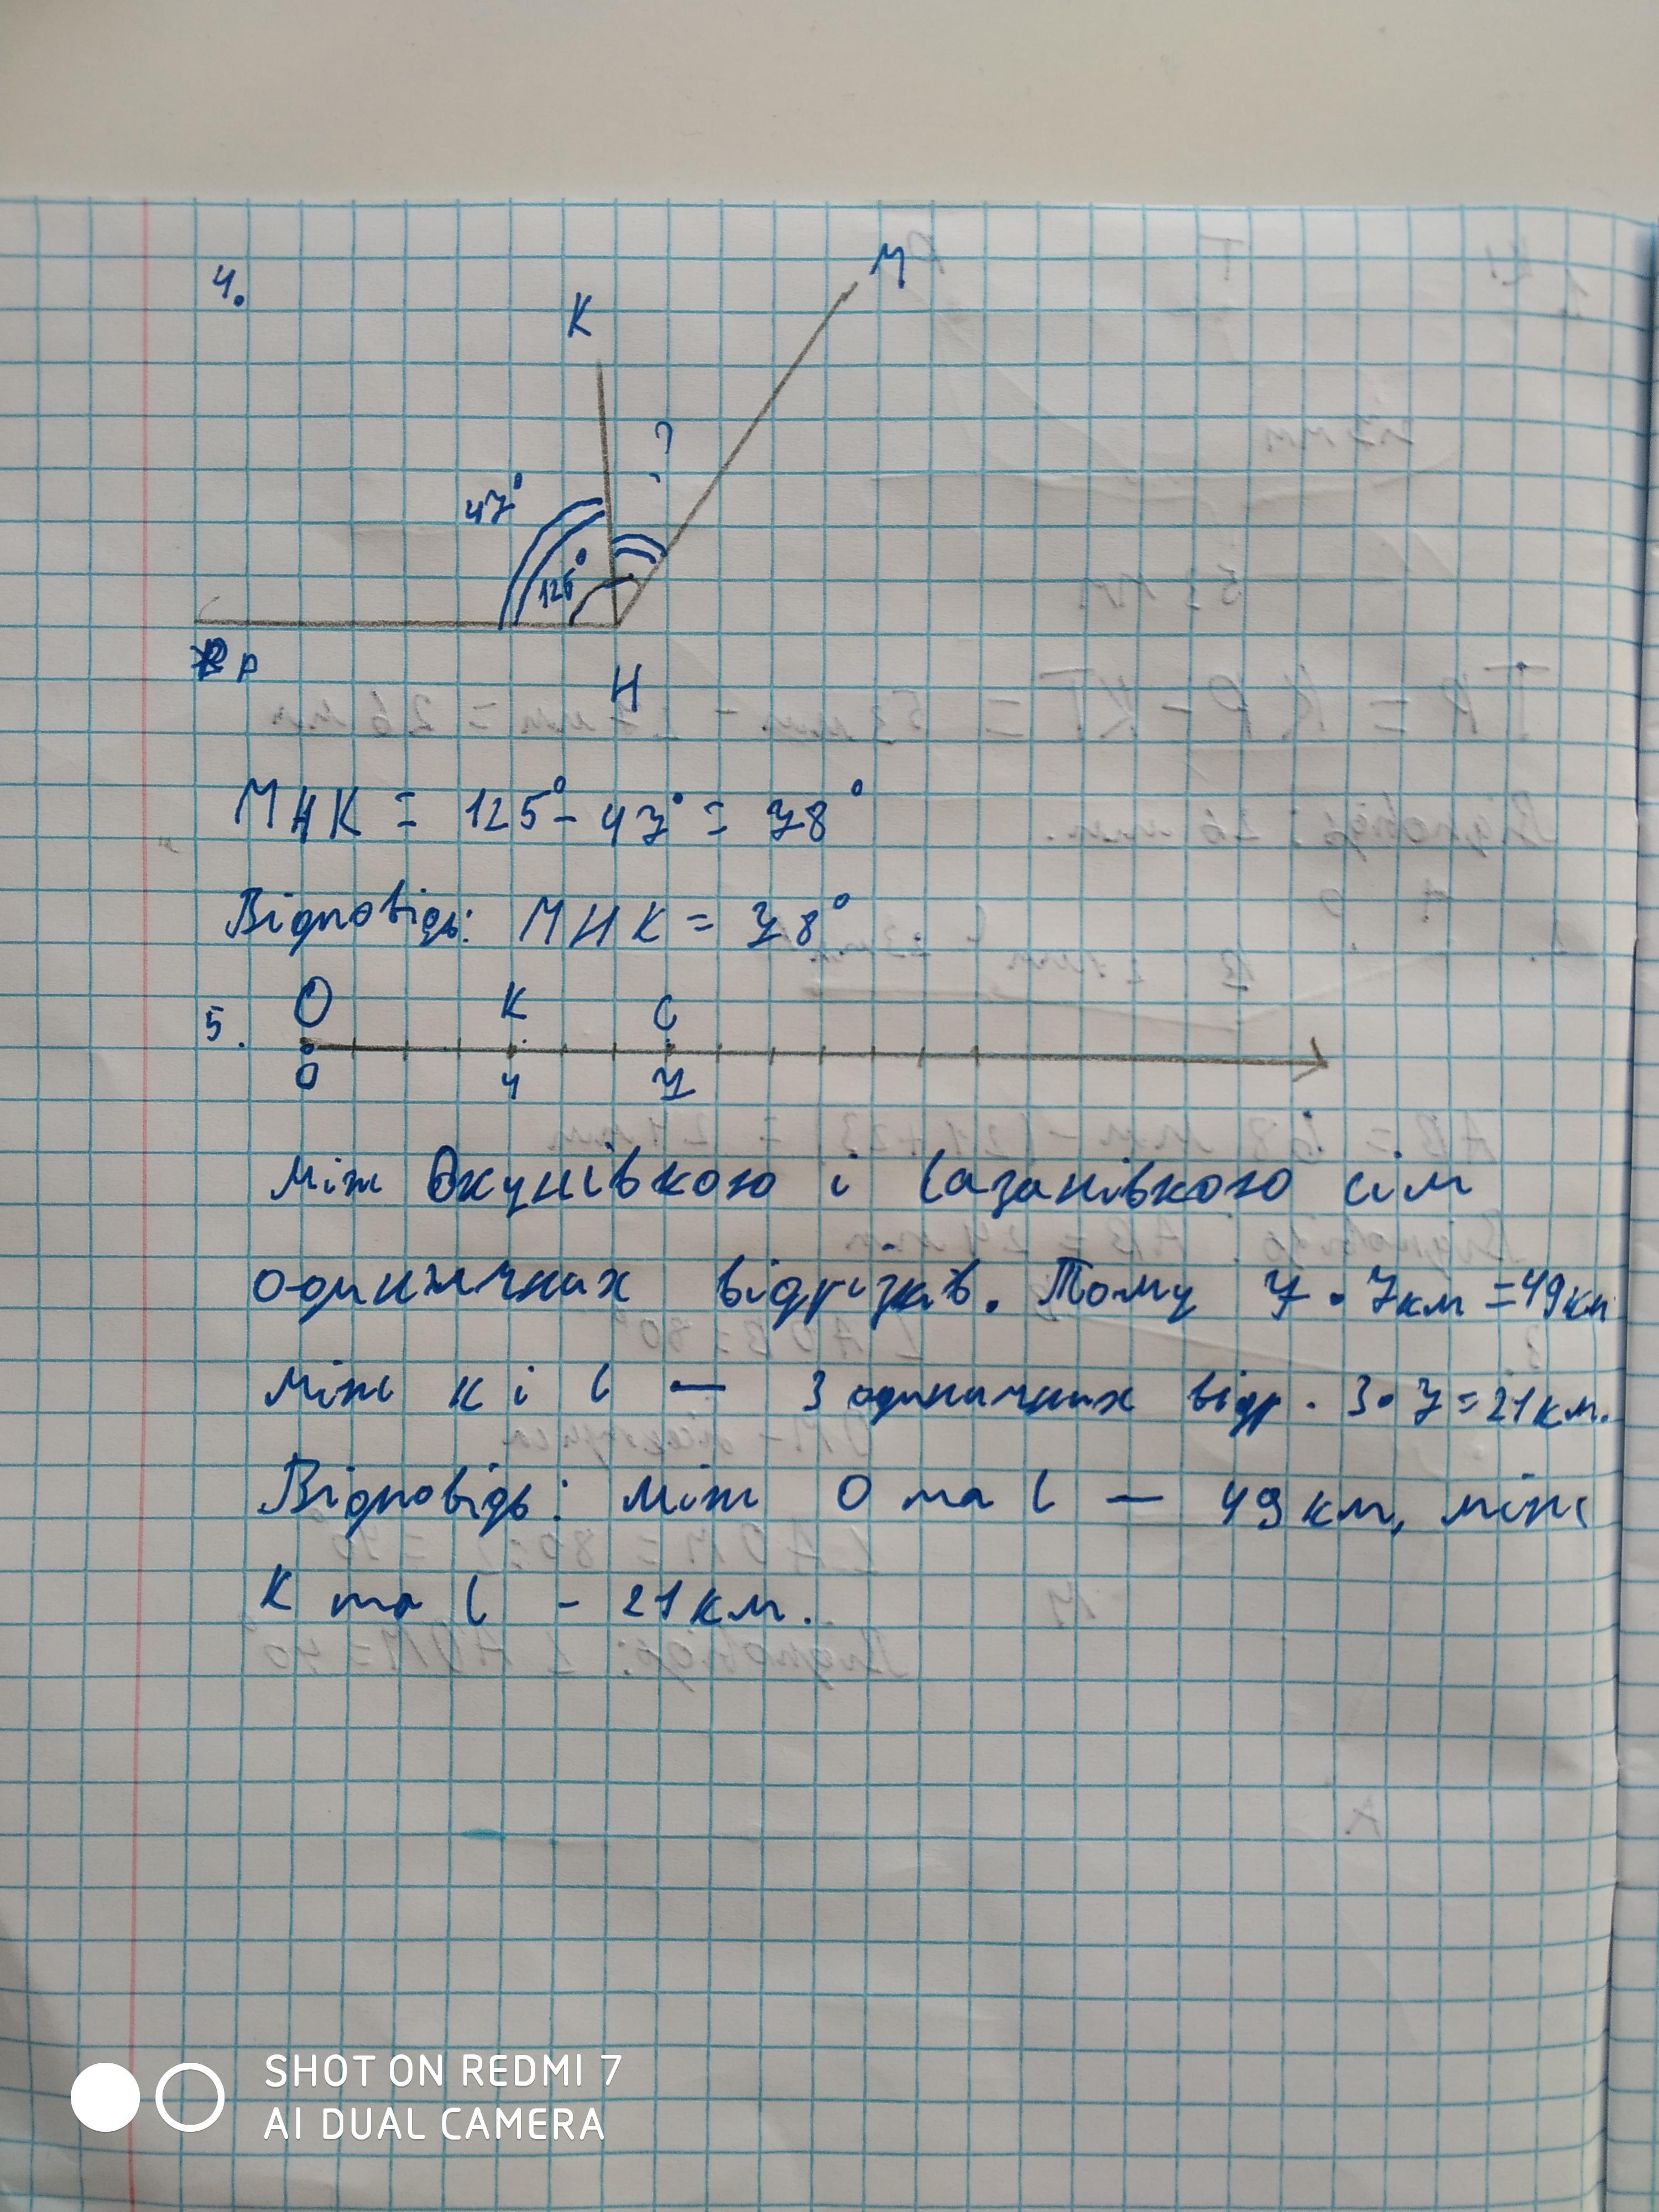 4.
К
М
?
47°
125°
Р
Н
МНК = 125° - 47° = 78°
Відповідь: МНК = 78°
5.
О К С
0 4 7
Між Окунівкою і Сазанівкою сім
одиничних відрізків. Тому 7 · 7км = 49км
Між К і С — 3 одиничних відр. 3·7=21км.
Відповідь: між О та С — 49 км, між
К та С - 21км.
SHOT ON REDMI 7
AI DUAL CAMERA